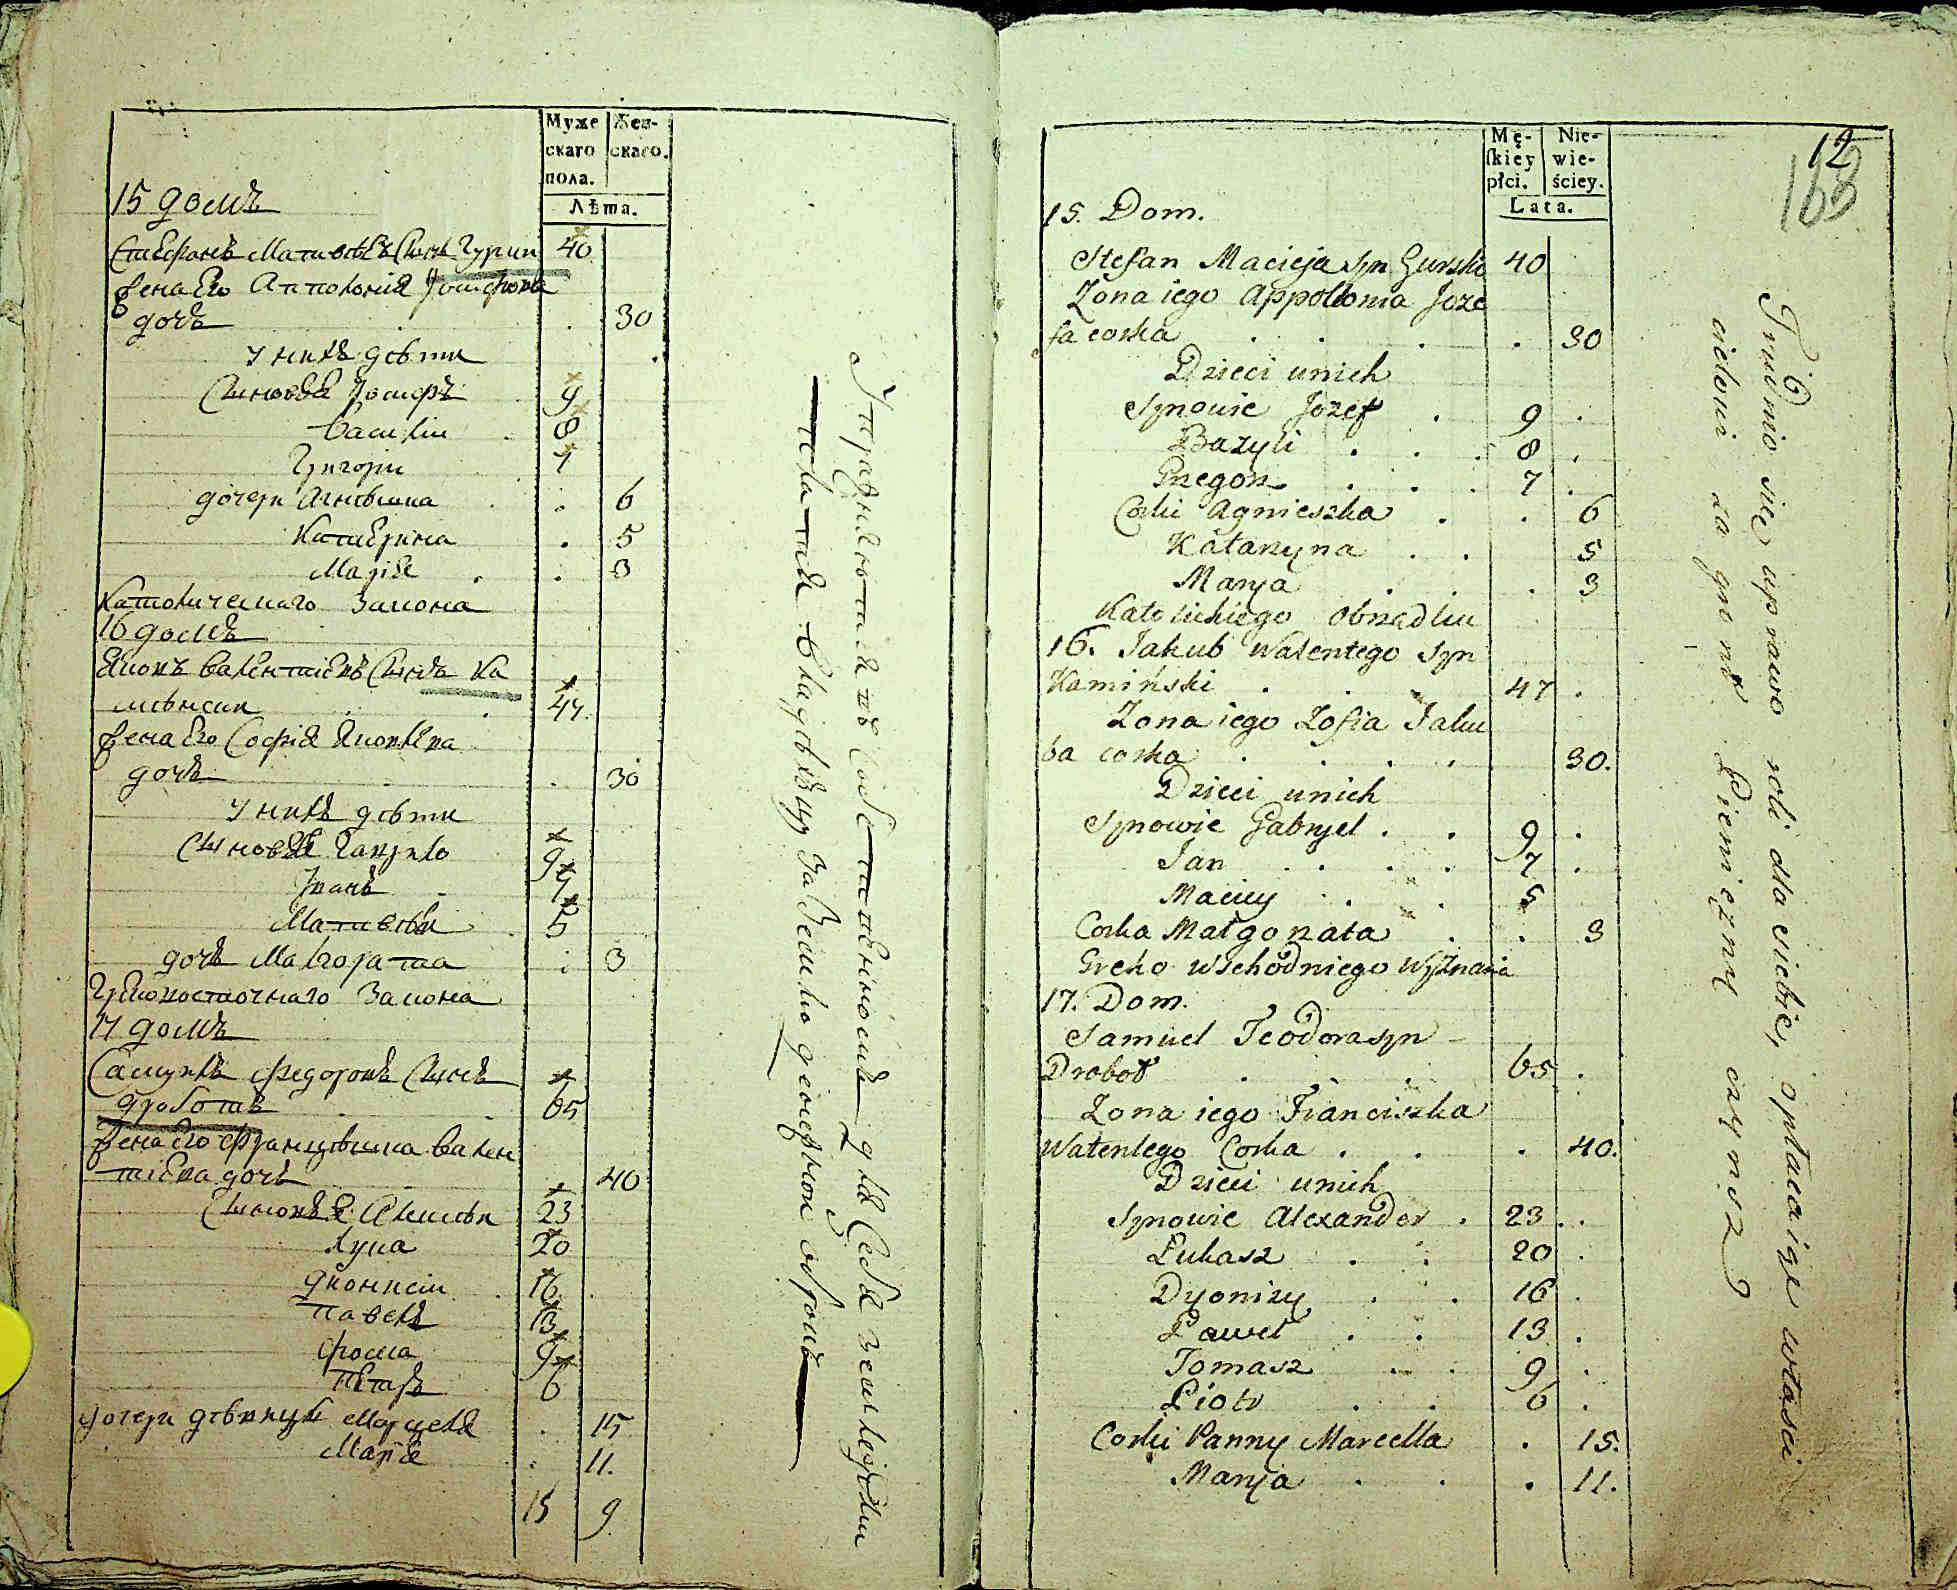 Муже
скаго
пола.
Жен-
скаго.
Лѣта.
15 домъ
Стефанъ Матвѣевъ Сынъ Гурски 40
Жена Его Апполонія Іосифова
дочь 30
У нихъ дѣти
Сыновья Іосифъ 9
Василій 8
Григорій 7
дочери Агнѣшка 6
Катерина 5
Марія 3
Католическаго Закона
16 домъ
Яковъ Валентіевъ Сынъ Ка
мѣнски 47
Жена Его Софія Яковлева
дочь 30
У нихъ дѣти
Сыновья Гаврило 9
Иванъ 7
Матвѣй 5
дочь Малгората 3
Грековосточнаго Закона
17 домъ
Самуилъ Федоровъ Сынъ
Дроботъ 65
Жена Его Францѣшка Вален
тіева дочь 40
Сыновья Алексѣй 23
Лука 20
Діонисій 16
Павелъ 13
Фома 9
Петръ 6
дочери дѣвицы Марцеля 15
Марія 11.
15 9
Упражняются въ для Себя земледѣліи
платя Владѣльцу за Землю денежной оброкъ
12
168
Mę-
ſkiey
płci.
Nie-
wie-
ściey.
Lata.
15. Dom.
Stefan Macieja syn Gurski 40
Zona iego Appollonia Joze
fa corka 30
Dzieci unich
Synowie Jozef 9
Bazyli 8
Grzegorz 7
Corki Agnieszka 6
Katarzyna 5
Marya 3
Katolickiego obrządku
16. Jakub Walentego Syn
Kamiński 47
Zona iego Zofia Jaku
ba corka 30.
Dzieci unich
Synowie Gabryel 9
Jan 7
Maciey 5
Corka Małgorzata 3
Greko wschodniego Wyznania
17. Dom.
Samuel Teodora syn
Drobot 65
Zona iego Franciszka
Walentego Corka 40.
Dzieci unich
Synowie Alexander 23
Łukasz 20
Dyonizy 16
Paweł 13
Tomasz 9
Piotr 6
Corki Panny Marcella 15.
Marya 11.
Trudnią się uprawą roli dla siebie, opłacaiąc właści
cielowi za grunt Pieniężny czynsz